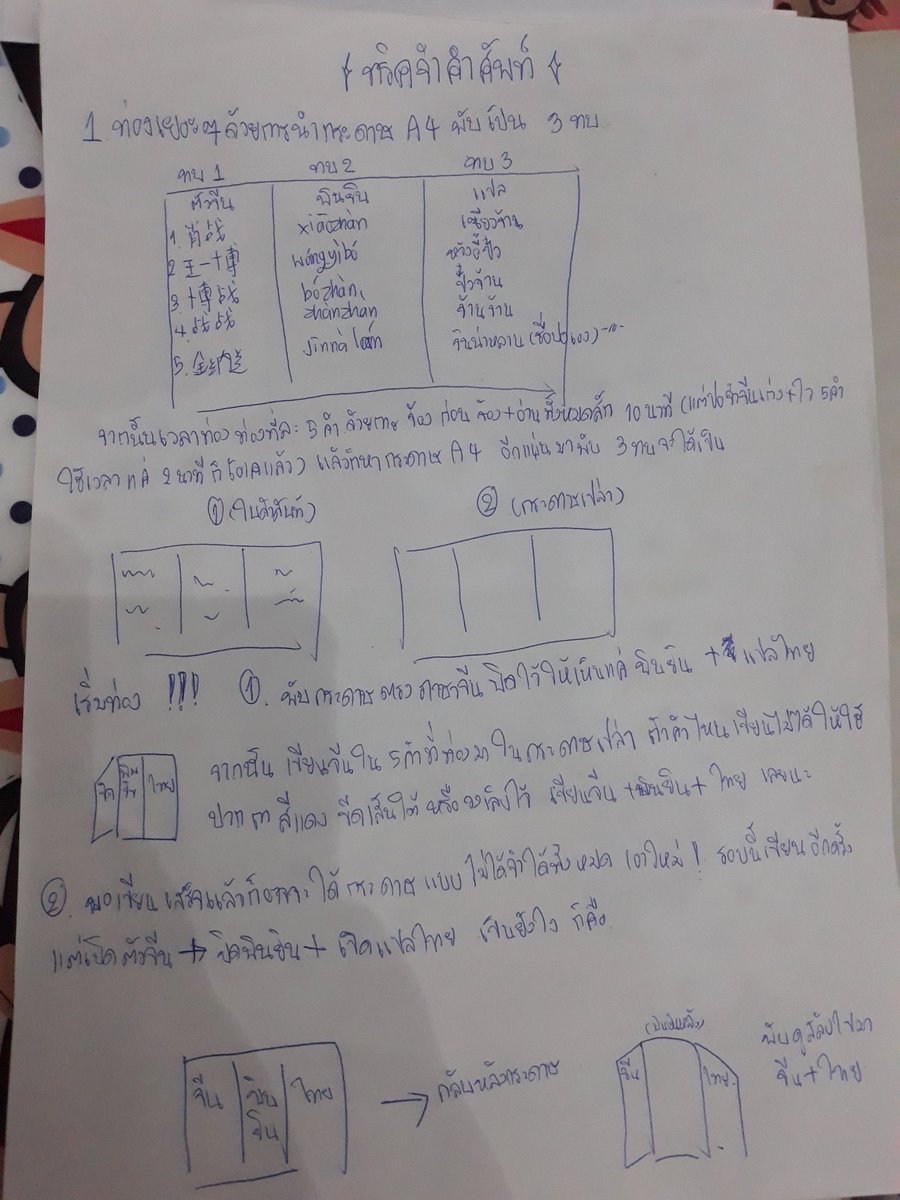 ทริคจำคำศัพท์
1. ท่องเยอะๆด้วยการนำกระดาษ A4 พับเป็น 3 ทบ
ทบ 1 ทบ 2 ทบ 3
ตัวจีน พินยิน แปล
1. 肖战 xiāozhàn เซียวจ้าน
2. 王一博 wángyībó หวังอี้ป๋อ
3. 博战 bózhàn ป๋อจ้าน
4. 战战 zhànzhàn จ้านจ้าน
5. jīnnàlán จินน่าหลาน
จากนั้นเวลาท่อง ท่องทีละ 5 คำ ด้วยการ จ้อง ก่อน จ้อง+อ่านทั้งหมดสัก 10 นาที 5 คำ
ใช้เวลาแค่ 2 นาทีก็โอเคแล้ว) แล้วก็หากระดาษ A4 อีกแผ่นมาพับ 3 ทบจะได้เป็น
① (ใบคำศัพท์) ② (กระดาษเปล่า)
เริ่มท่อง !!! ①. พับกระดาษตรงภาษาจีนปิดไว้ให้เห็นแค่ พินยิน + แปลไทย
ปิด พินยิน ไทย
จากนั้น เขียนจีนใน 5 คำที่ท่องมาในกระดาษเปล่า ถ้าคำไหนเขียนไม่ได้ให้ใช้
ปากกาสีแดง ขีดเส้นใต้ หรือวงเล็บไว้ เขียนจีน+พินยิน+ไทย เลยนะ
②. พอเขียนเสร็จแล้วก็อาจจะได้กระดาษแบบ ไม่ได้จำได้ทั้งหมด เอาใหม่! รอบนี้เขียนอีกครั้ง
แต่เปิดตัวจีน + ปิดพินยิน + เปิดแปลไทย เป็นยังไง ก็คือ
จีน พินยิน ไทย → กลับหลังกระดาษ
จีน ไทย
พับ
จีน+ไทย